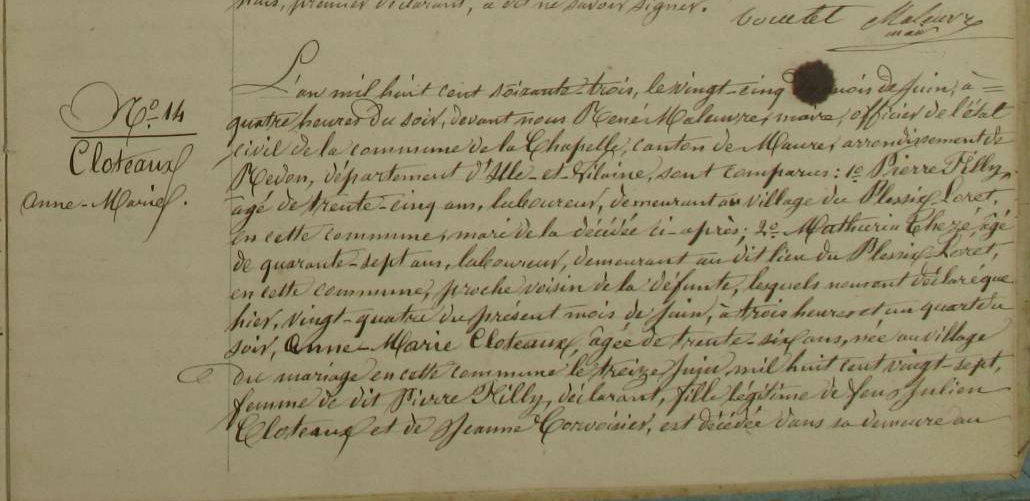 premier déclarant, a dit ne savoir signer.
Maleuvre
maire
N.o 14
Cloteaux
Anne-Marie.
L'an mil huit cent soixante-trois, le vingt-cinq mois de Juin, à =
quatre heures du soir, devant nous René Maleuvre, maire, officier de l'état
civil de la commune de la Chapelle, canton de Maure, arrondissement de
Redon, département d'Ille-et-Vilaine, sont comparus: 1o Pierre Tilly,
âgé de trente-cinq ans, laboureur, demeurant au village du Plessix Loret,
en cette commune, mari de la décédée ci-après; 2o Mathurin Chezé, âgé
de quarante-sept ans, laboureur, demeurant au dit lieu du Plessix-Loret,
en cette commune, proche voisin de la défunte, lesquels nous ont déclaré que
hier, vingt-quatre du présent mois de Juin, à trois heures et un quart du
soir, Anne-Marie Cloteaux, âgée de trente-six ans, née au village
du mariage en cette commune le treize Juin mil huit cent vingt-sept,
femme de dit Pierre Tilly, déclarant, fille légitime de feu Julien
Cloteaux et de Jeanne Corvoisier, est décédée dans sa demeure au